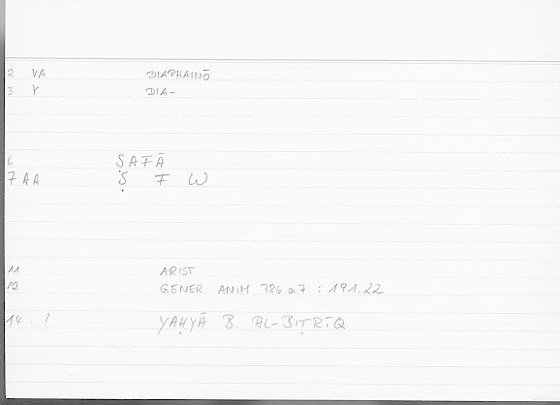 2 VA DIAPHAINŌ
3 Y DIA-
6 ṢAFĀ
7 AA Ṣ F W
11 ARIST
12 GENER ANIM 786 a 7 : 191.22
14 . ? YAḤYĀ B. AL-BIṬRĪQ